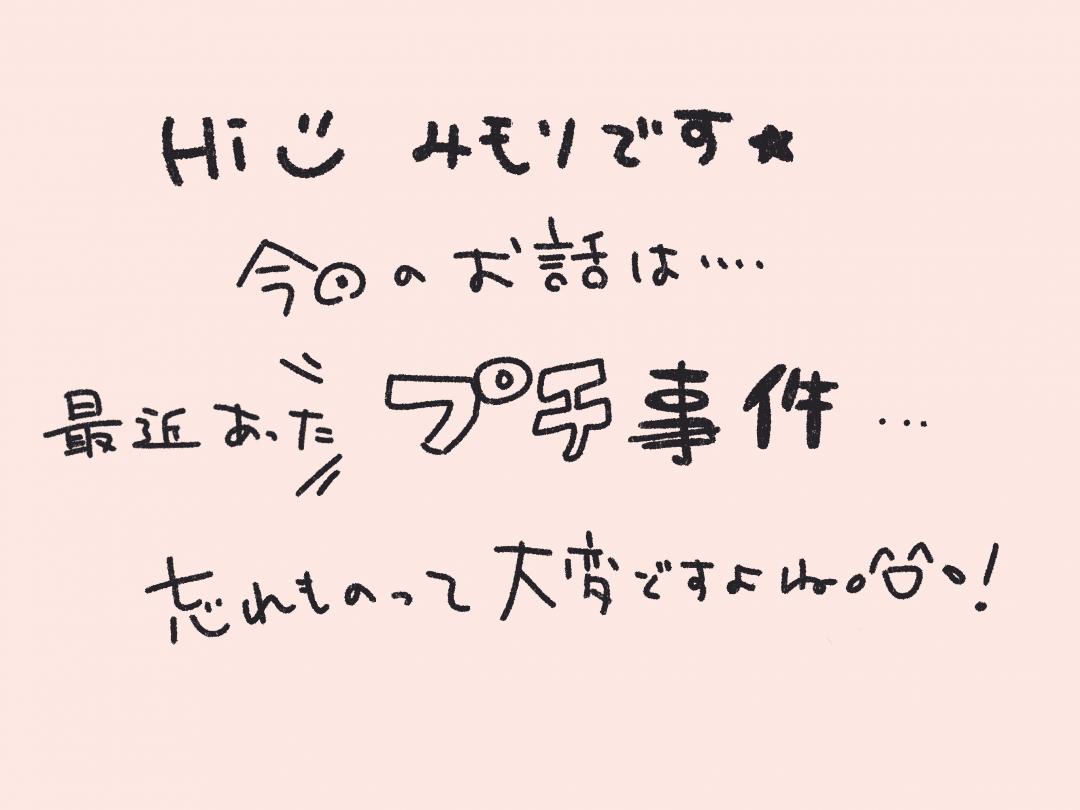 Hi ミモリです★
今日のお話は....
最近あった プチ事件...
忘れものって大変ですよね。!